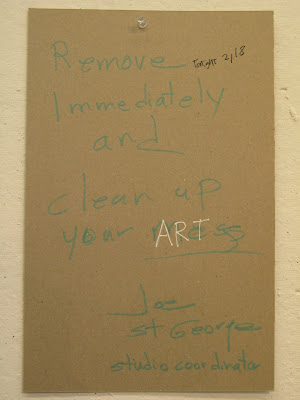 Remove Tonight 2/18
Immediately
and
clean up
your mess ART
Joe
St George
studio coordinator